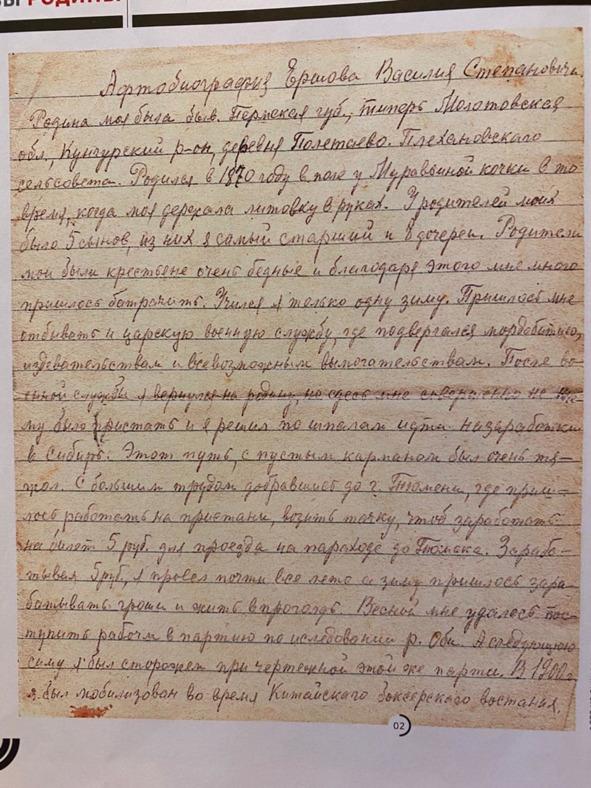 РОДИНЫ
Афтобиография Ершова Василия Степановича.
Родина моя была быв. Пермская губ., типерь Молотовская
обл, Кунгурский р-он, деревня Полетаево. Плехановского
сельсовета. Родился в 1870 году в поле у Муравьиной кочки в то
время, когда моя держала литовку в руках. У родителей моих
было 5 сынов, из них я самый старший и 8 дочерей. Родители
мои были крестьяне очень бедные и благодаря этого мне много
пришлось батрачить. Учился я только одну зиму. Пришлось мне
отбывать и царскую военную службу, где подвергался мордобитию,
издевательствам и всевозможным вымогательствам. После во-
енной службы я вернулся на родину, но здесь мне совершенно не к че-
му было пристать и я решил по шпалам идти на заработки
в Сибирь. Этот путь, с пустым карманом был очень тя-
жол. С большим трудом добравшись до г. Тюмени, где приш-
лось работать на пристани, возить тачку, чтоб заработать
на билет 5 руб. для проезда на пароходе до Томска. Зараба-
тывая 5 руб, я провел почти все лето а зиму пришлось зара-
батывать гроши и жить впроголдь. Весной мне удалось пос-
тупить рабочм в партию по иследовании р. Оби. А следующую
зиму я был сторожем при чертежной этой же парти. В 1900 г
я был мобилизован во время Китайского боксерского востания.
02